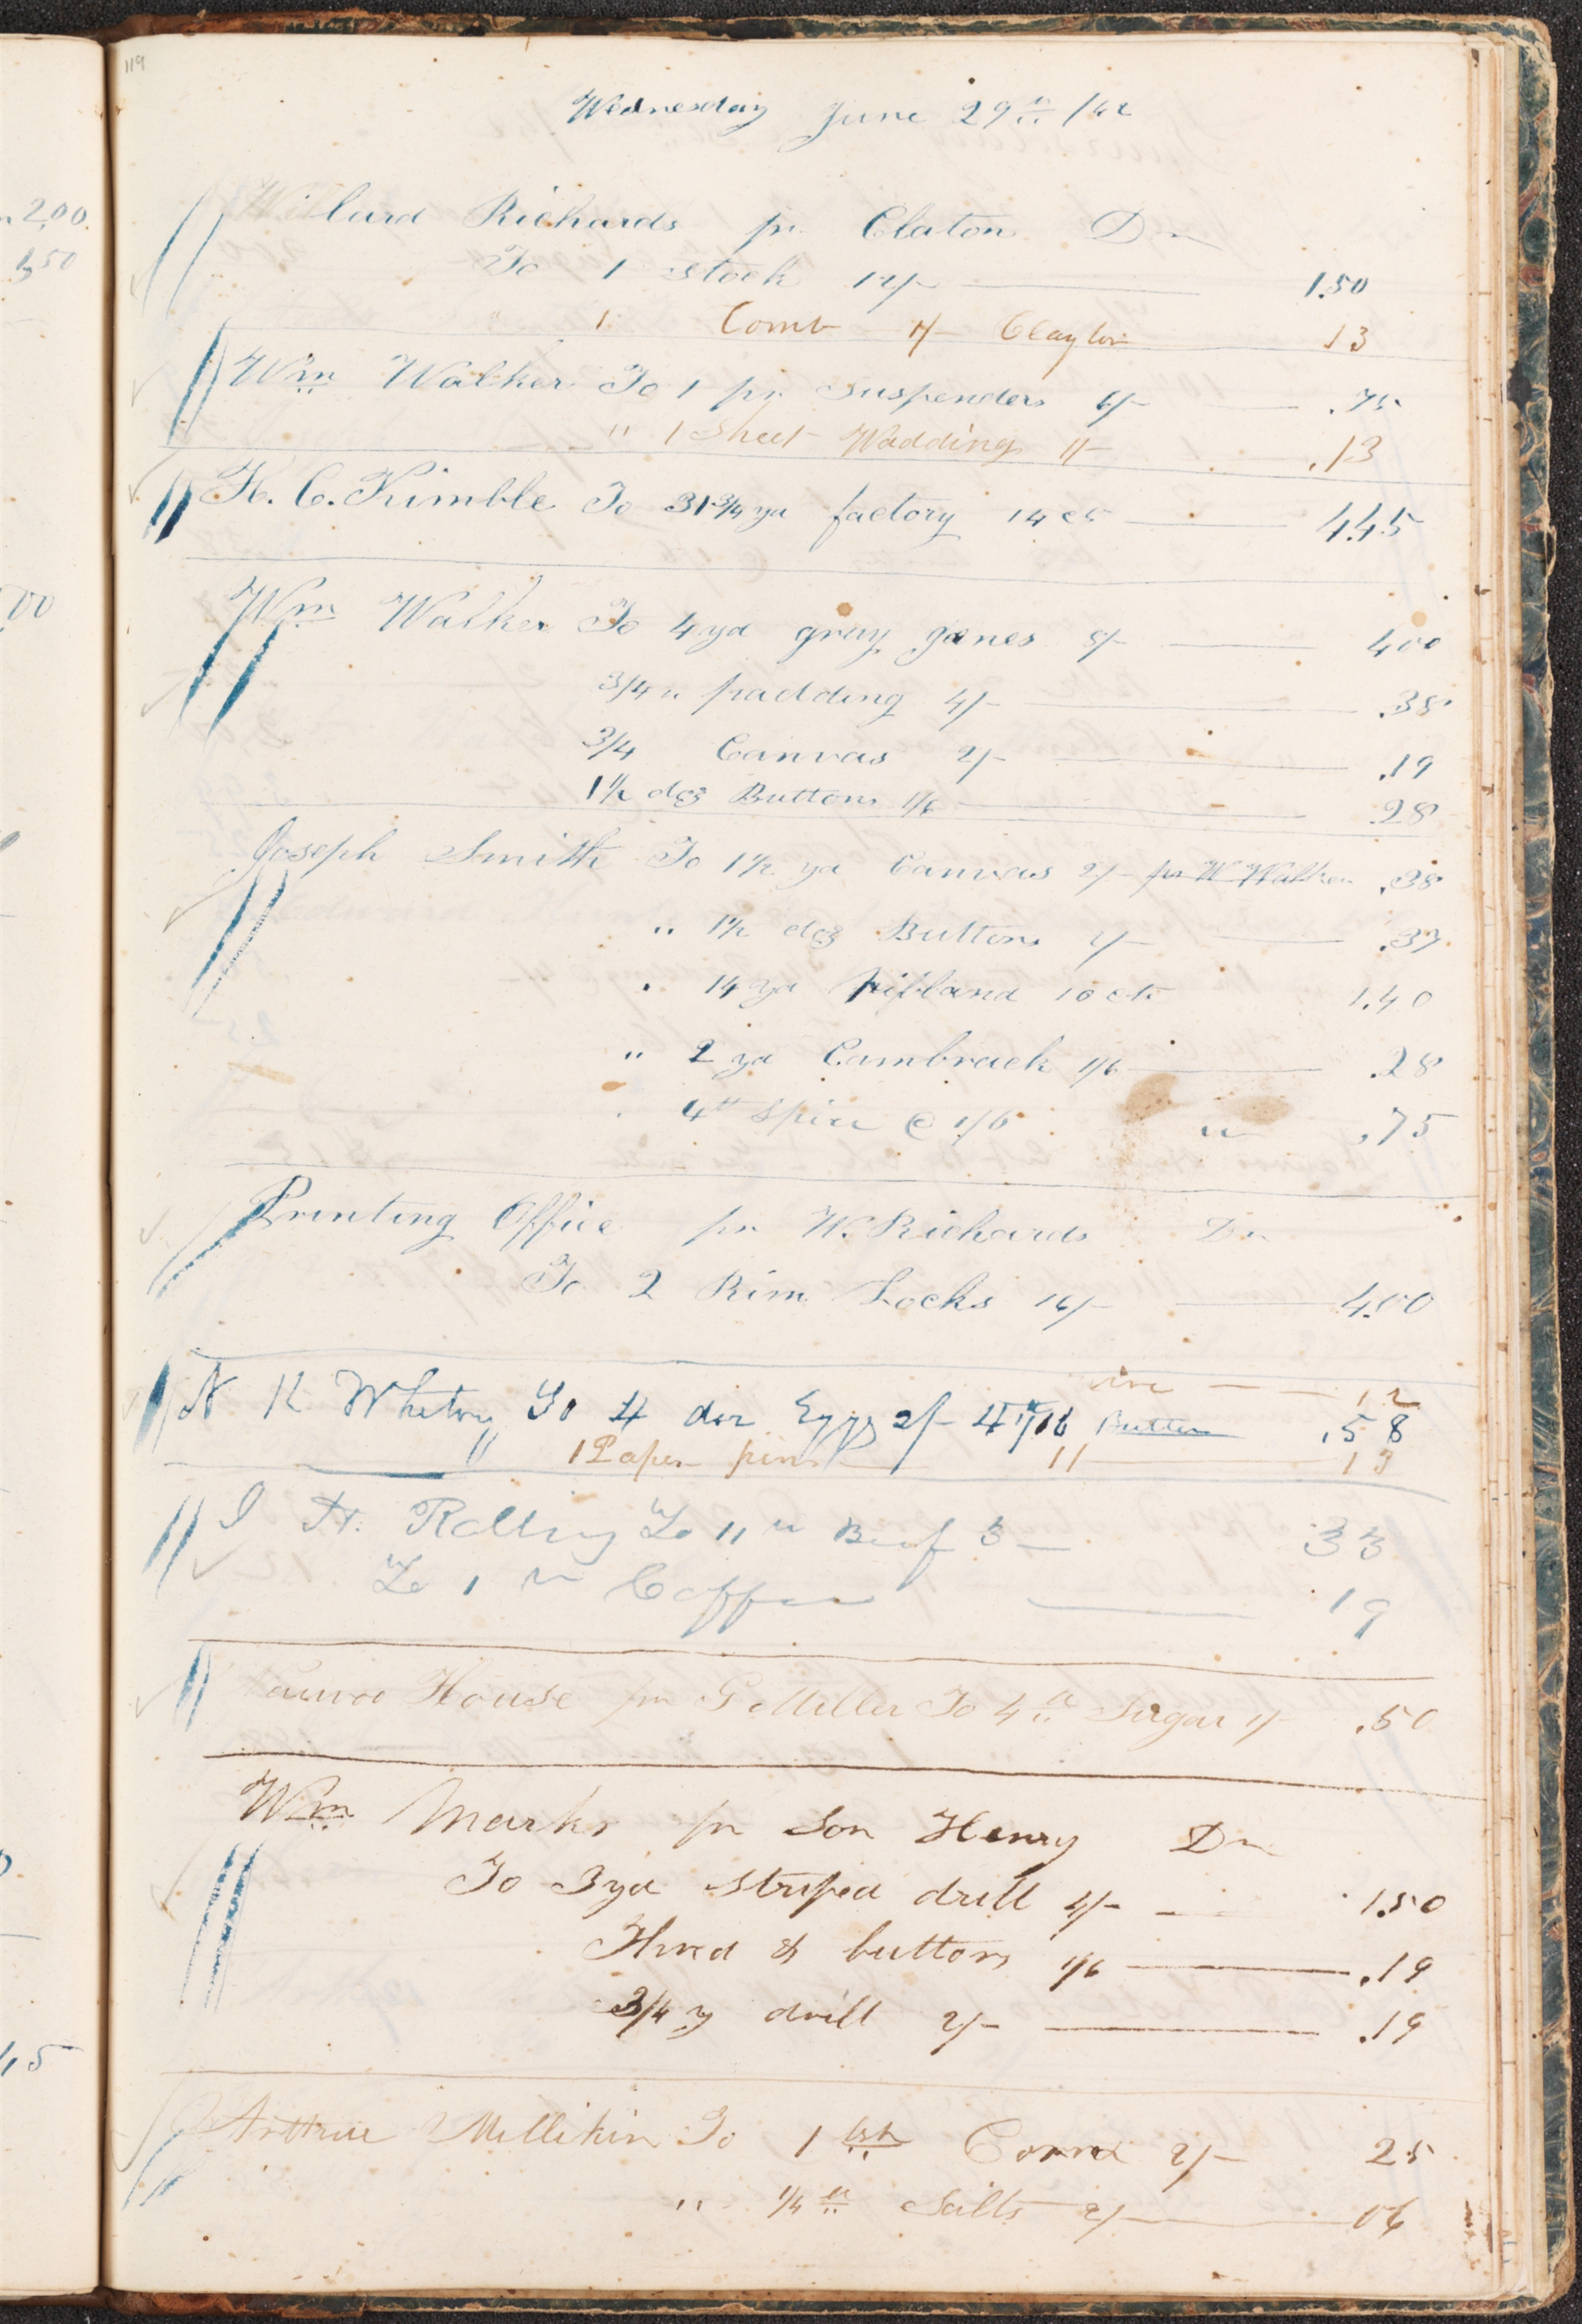 119
Wednesday June 29th /42
200.
1,50
Willard Richards pr Claton Dr
To 1 Stock 12/- 1.50
" 1 Comb 1/- Clayton .13
Wm Walker To 1 pr Suspenders 6/- .75
" 1 Sheet Wadding 1/- .13
H. C. Kimble To 31 3/4 yd factory 14 cts 4.45
00
Wm Walker To 4 yd gray janes 8/- 400
3/4 " padding 4/- .38
3/4 Canvas 2/- .19
1 1/2 doz Buttons 1/6 28
Joseph Smith To 1 1/2 yd Canvas 2/- pr W Walker .38
" 1 1/2 doz Buttons 2/- .37
" 14 yd Ribband 10 cts 1.40
" 2 yd Cambrack 1/6 .28
4 lb Spice @ 1/6 " .75
Printing Office pr W. Richards Dr
To 2 Rim Locks 16/- 4.00
12
N K Whitny To 4 doz Eggs 2/- 4 lb Butter .58
" 1 Paper pins 11 13
I H. Rolling To 11 lb Beef 3 33
To 1 lb Coffee 19
Nauvoo House pr G Miller To 4 lb Sugar 1/- .50
Wm Marks pr Son Henry Dr
To 3 yd Striped drill 4/- 1.50
Thred & buttons 1/6 .19
3/4 y drill 2/- .19
15
Arthur Millikin To 1 bsh Corn 2/- 25
" 1/4 lb Salts 2/- 06